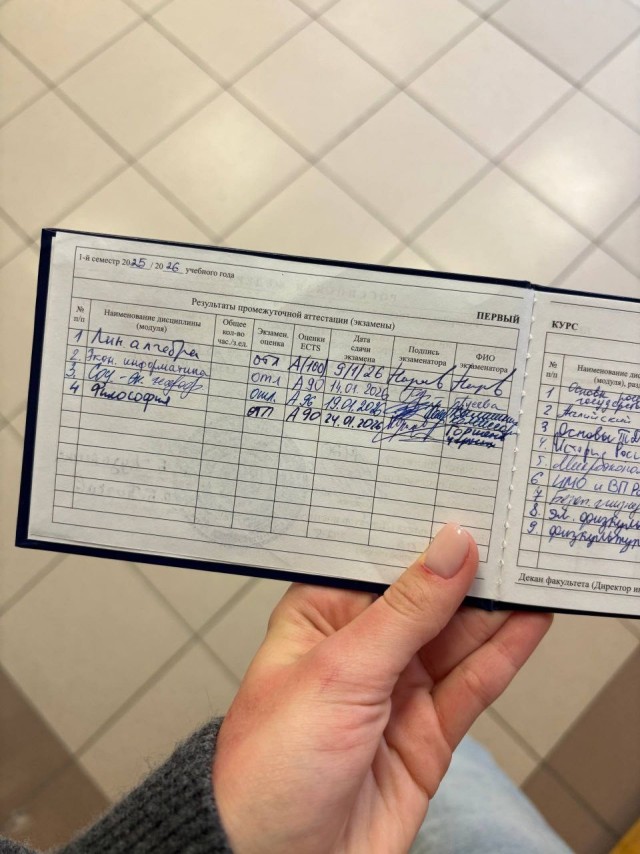 1-й семестр 2025 / 2026 учебного года
Результаты промежуточной аттестации (экзамены)
ПЕРВЫЙ
№ п/п
Наименование дисциплины (модуля)
Общее кол-во час./з.ед.
Экзамен. оценка
Оценки ECTS
Дата сдачи экзамена
Подпись экзаменатора
ФИО экзаменатора
1 Лин алгебра отл A/100 9/1/26
2 Экон. информатика отл A 90 14.01.2026
3 Соц-эк географ отл. A 96 19.01.2026
4 Философия отл A 90 24.01.2026
КУРС
№ п/п
Наименование дис
(модуля), ра
1 Основы
2 Английский
3 Основы
4 История Росс
5
6 ИМО и ВП Р
7
8 Эл. физкуль
9. физкультур
Декан факультета (Директор ин